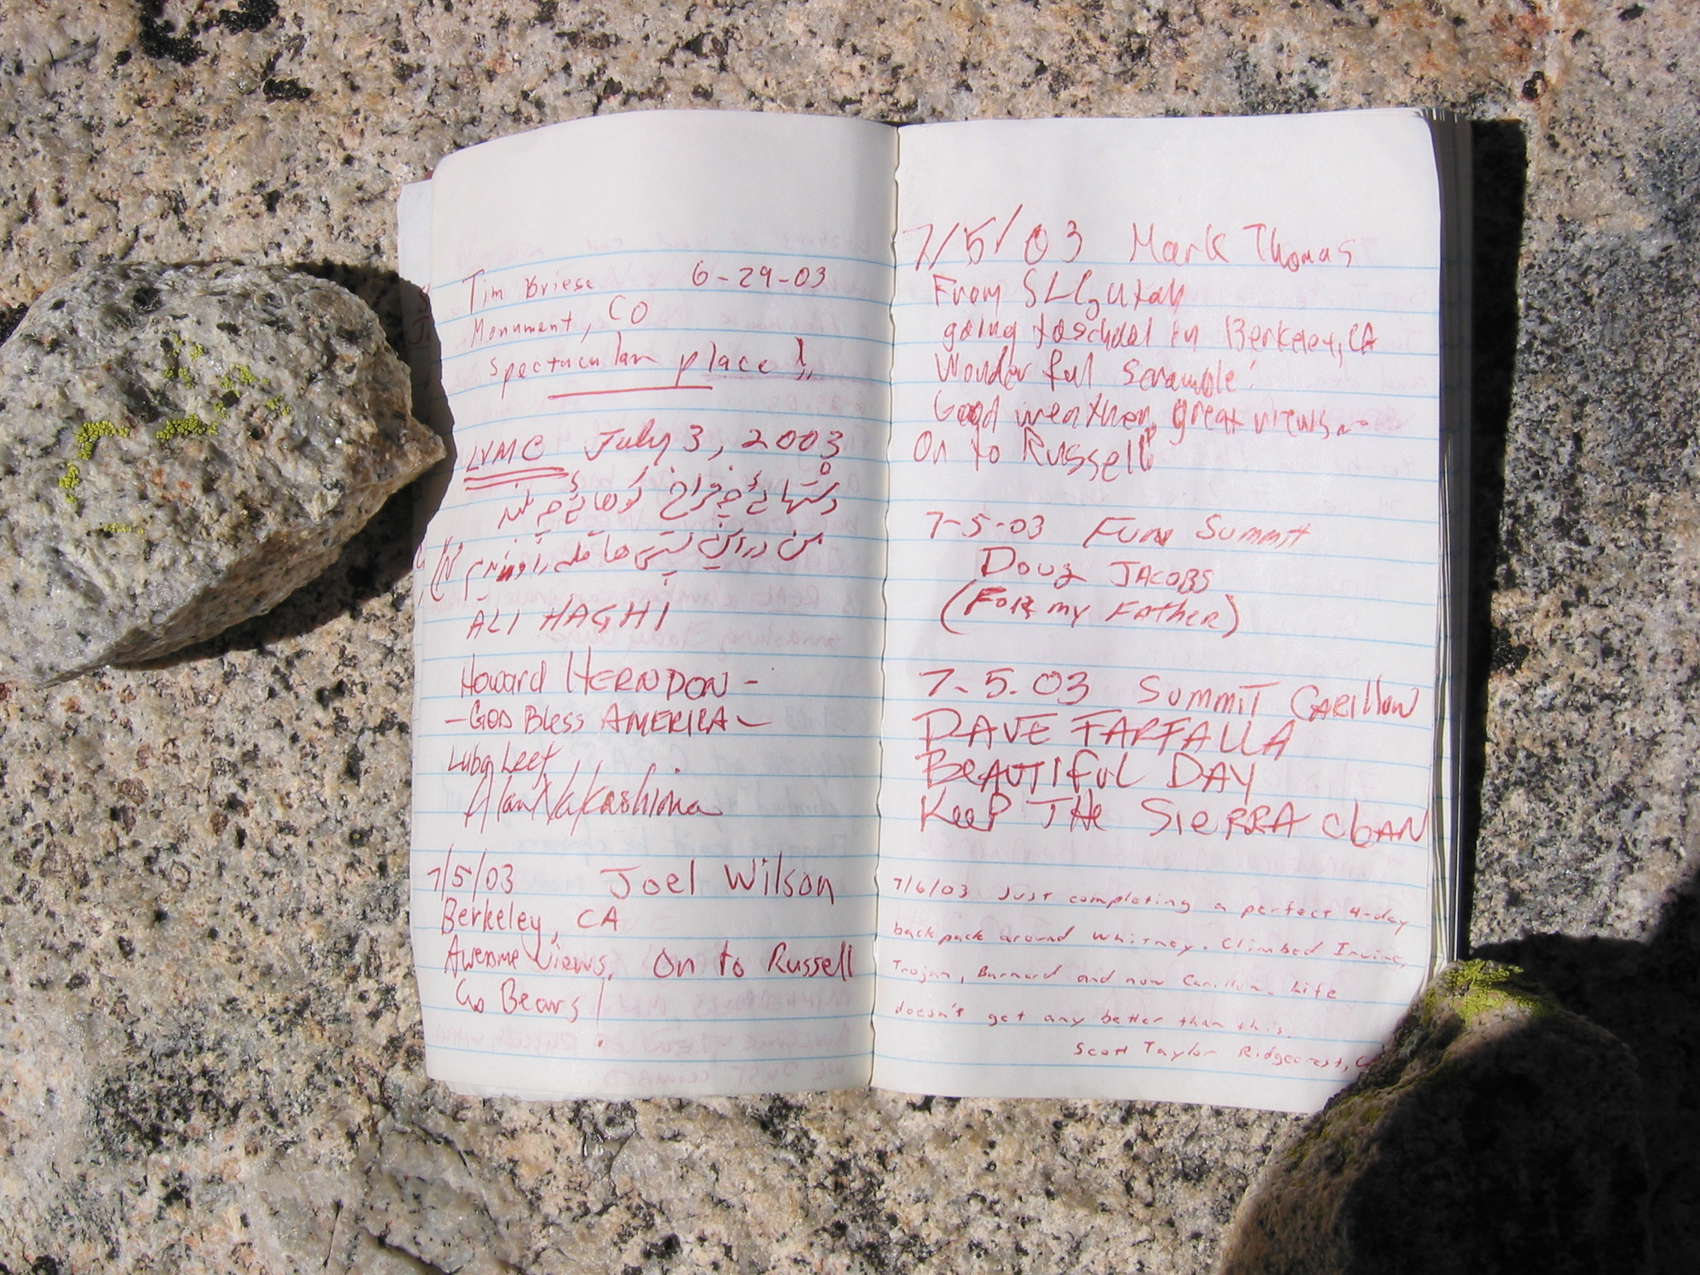 Tim Briese 6-29-03
Monument, CO
Spectacular place!
LVMC July 3, 2003
دشتهائی چه فراخ کوههائی چه بلند
من در این
ALI HAGHI
Howard HERNDON -
- GOD Bless AMERICA -
Luba Leef
Alan Nakashima
7/5/03 Joel Wilson
Berkeley, CA
Awesome views, On to Russell
Go Bears!
7/5/03 Mark Thomas
From SLC, Utah
going to school in Berkeley, CA
Wonderful Scramble!
Good weather, great views~
On to Russell!
7-5-03 Fun Summit
Doug JACOBS
(FOR my Father)
7-5-03 Summit Carillon
DAVE FARFALLA
BEAUTIFUL DAY
KeeP THe SIERRA cLEAN
7/6/03 Just completing a perfect 4-day
backpack around Whitney. Climbed Irvine,
Trojan, Barnard and now Carillon. Life
doesn't get any better than this.
Scott Taylor Ridgecrest,